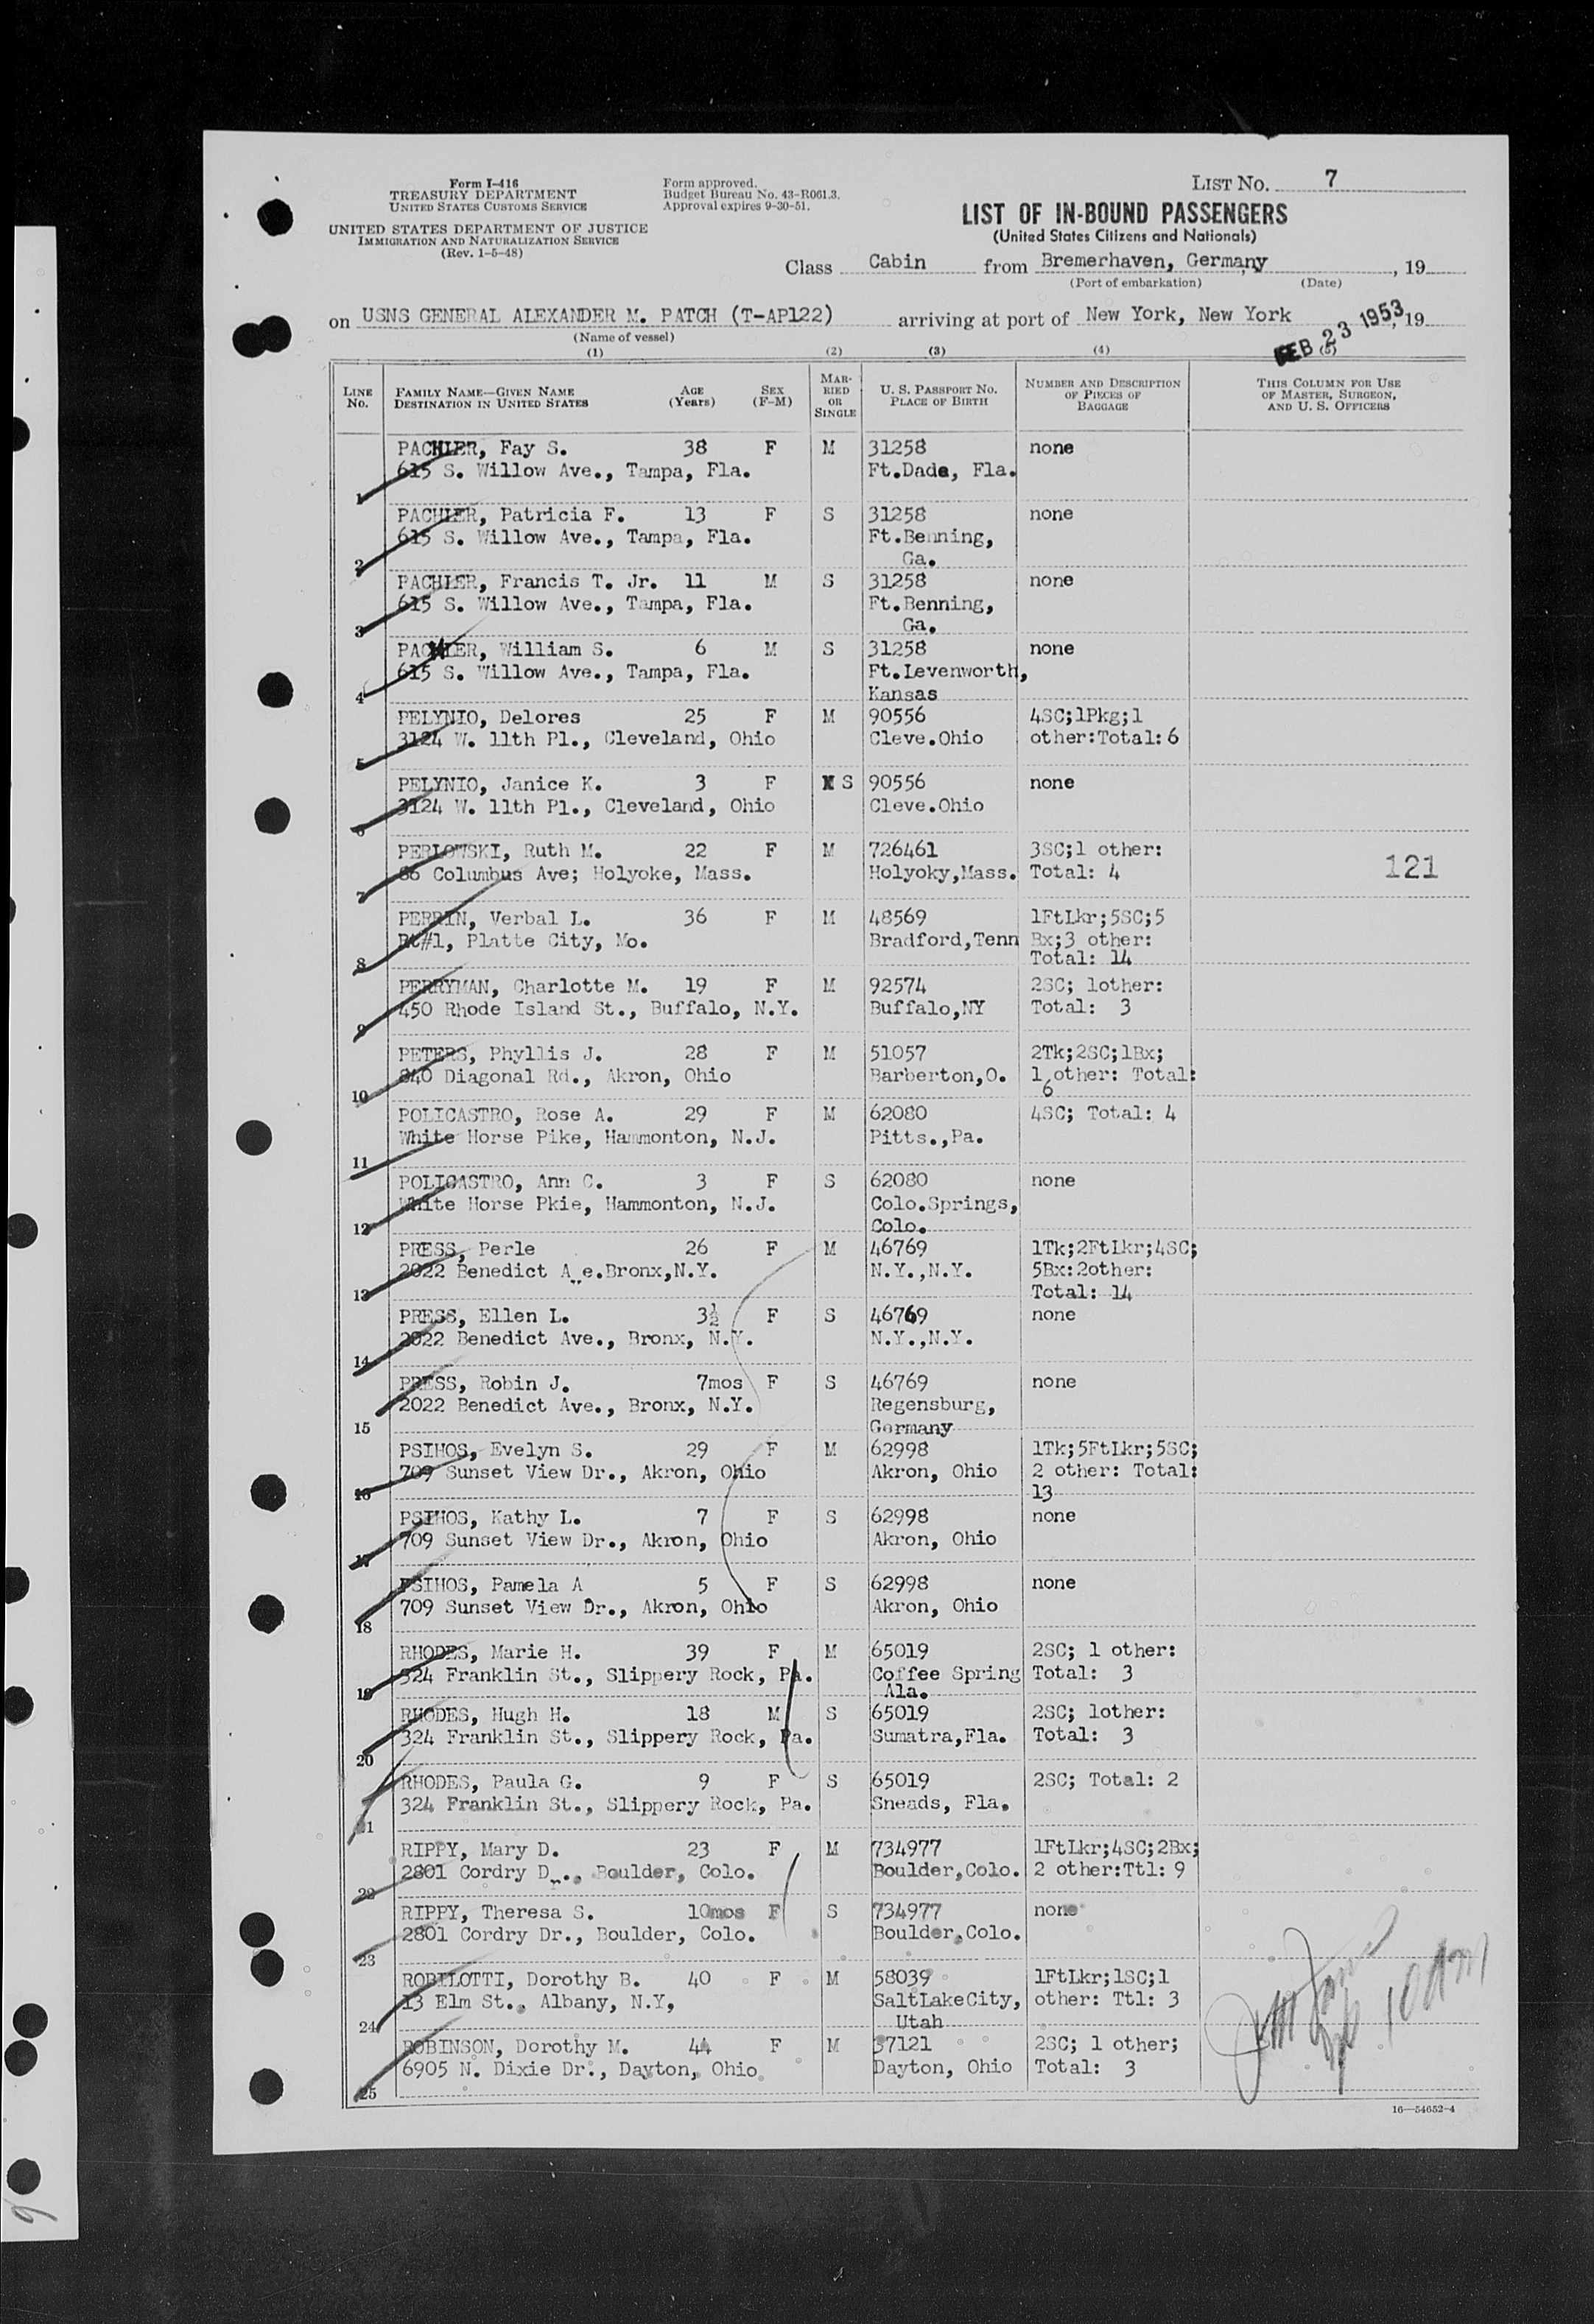 Form I-416
TREASURY DEPARTMENT
UNITED STATES CUSTOMS SERVICE
UNITED STATES DEPARTMENT OF JUSTICE
IMMIGRATION AND NATURALIZATION SERVICE
(Rev. 1-5-48)
Form approved.
Budget Bureau No. 43-R061.3.
Approval expires 9-30-51.
LIST No. 7
LIST OF IN-BOUND PASSENGERS
(United States Citizens and Nationals)
Class Cabin from Bremerhaven, Germany , 19
(Port of embarkation) (Date)
on USNS GENERAL ALEXANDER M. PATCH (T-AP122) arriving at port of New York, New York FEB 23 1953, 19
(Name of vessel)
(1) (2) (3) (4) (5)
LINE No. FAMILY NAME—GIVEN NAME DESTINATION IN UNITED STATES AGE (Years) SEX (F-M) MARRIED OR SINGLE U. S. PASSPORT No. PLACE OF BIRTH NUMBER AND DESCRIPTION OF PIECES OF BAGGAGE THIS COLUMN FOR USE OF MASTER, SURGEON, AND U. S. OFFICERS
PACHLER, Fay S. 38 F M 31258 none
615 S. Willow Ave., Tampa, Fla. Ft.Dade, Fla.
1
PACHLER, Patricia F. 13 F S 31258 none
615 S. Willow Ave., Tampa, Fla. Ft.Benning,
2 Ga.
PACHLER, Francis T. Jr. 11 M S 31258 none
615 S. Willow Ave., Tampa, Fla. Ft.Benning,
3 Ga.
PACHLER, William S. 6 M S 31258 none
615 S. Willow Ave., Tampa, Fla. Ft.Levenworth,
4 Kansas
PELYNIO, Delores 25 F M 90556 4SC;1Pkg;1
3124 W. 11th Pl., Cleveland, Ohio Cleve.Ohio other:Total:6
5
PELYNIO, Janice K. 3 F S 90556 none
3124 W. 11th Pl., Cleveland, Ohio Cleve.Ohio
6
PERLOWSKI, Ruth M. 22 F M 726461 3SC;1 other:
86 Columbus Ave; Holyoke, Mass. Holyoky,Mass. Total: 4 121
7
PERRIN, Verbal L. 36 F M 48569 1FtLkr;5SC;5
Rt#1, Platte City, Mo. Bradford,Tenn Bx;3 other:
8 Total: 14
PERRYMAN, Charlotte M. 19 F M 92574 2SC; 1other:
450 Rhode Island St., Buffalo, N.Y. Buffalo,NY Total: 3
9
PETERS, Phyllis J. 28 F M 51057 2Tk;2SC;1Bx;
840 Diagonal Rd., Akron, Ohio Barberton,O. 1 other: Total:
10 6
POLICASTRO, Rose A. 29 F M 62080 4SC; Total: 4
White Horse Pike, Hammonton, N.J. Pitts.,Pa.
11
POLICASTRO, Ann C. 3 F S 62080 none
White Horse Pkie, Hammonton, N.J. Colo.Springs,
12 Colo.
PRESS, Perle 26 F M 46769 1Tk;2FtLkr;4SC;
2022 Benedict A e.Bronx,N.Y. N.Y.,N.Y. 5Bx:2other:
13 Total: 14
PRESS, Ellen L. 3½ F S 46769 none
2022 Benedict Ave., Bronx, N.Y. N.Y.,N.Y.
14
PRESS, Robin J. 7mos F S 46769 none
2022 Benedict Ave., Bronx, N.Y. Regensburg,
15 Germany
PSIHOS, Evelyn S. 29 F M 62998 1Tk;5FtLkr;5SC;
709 Sunset View Dr., Akron, Ohio Akron, Ohio 2 other: Total:
16 13
PSIHOS, Kathy L. 7 F S 62998 none
709 Sunset View Dr., Akron, Ohio Akron, Ohio
17
PSIHOS, Pamela A 5 F S 62998 none
709 Sunset View Dr., Akron, Ohio Akron, Ohio
18
RHODES, Marie H. 39 F M 65019 2SC; 1 other:
324 Franklin St., Slippery Rock, Pa. Coffee Spring Total: 3
19 Ala.
RHODES, Hugh H. 18 M S 65019 2SC; 1other:
324 Franklin St., Slippery Rock, Pa. Sumatra,Fla. Total: 3
20
RHODES, Paula G. 9 F S 65019 2SC; Total: 2
324 Franklin St., Slippery Rock, Pa. Sneads, Fla.
21
RIPPY, Mary D. 23 F M 734977 1FtLkr;4SC;2Bx;
2801 Cordry Dr., Boulder, Colo. Boulder,Colo. 2 other:Ttl: 9
22
RIPPY, Theresa S. 10mos F S 734977 none
2801 Cordry Dr., Boulder, Colo. Boulder,Colo.
23
ROBILOTTI, Dorothy B. 40 F M 58039 1FtLkr;1SC;1
13 Elm St., Albany, N.Y, SaltLakeCity, other: Ttl: 3
24 Utah
ROBINSON, Dorothy M. 44 F M 37121 2SC; 1 other;
6905 N. Dixie Dr., Dayton, Ohio Dayton, Ohio Total: 3
25
16—54652-4